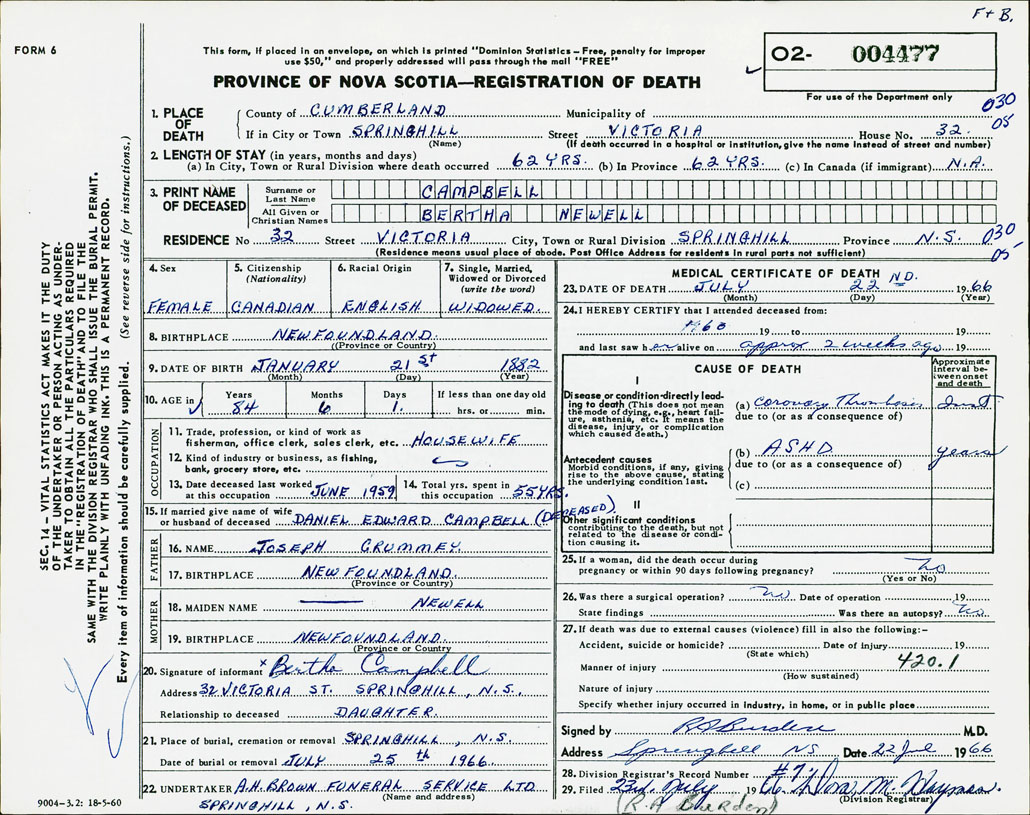 F + B.
FORM 6
This form, if placed in an envelope, on which is printed "Dominion Statistics – Free, penalty for improper
use $50," and properly addressed will pass through the mail "FREE"
PROVINCE OF NOVA SCOTIA—REGISTRATION OF DEATH
O2- 004477
For use of the Department only
030
05
1. PLACE OF DEATH
County of CUMBERLAND Municipality of
If in City or Town SPRINGHILL Street VICTORIA House No. 32.
(Name) (If death occurred in a hospital or institution, give the name instead of street and number)
2. LENGTH OF STAY (in years, months and days)
(a) In City, Town or Rural Division where death occurred 62 YRS. (b) In Province 62 YRS. (c) In Canada (if immigrant) N.A.
3. PRINT NAME OF DECEASED
Surname or Last Name CAMPBELL
All Given or Christian Names BERTHA NEWELL
RESIDENCE No 32 Street VICTORIA City, Town or Rural Division SPRINGHILL Province N.S. 030
05
(Residence means usual place of abode. Post Office Address for residents in rural parts not sufficient)
4. Sex FEMALE
5. Citizenship (Nationality) CANADIAN
6. Racial Origin ENGLISH
7. Single, Married, Widowed or Divorced (write the word) WIDOWED.
8. BIRTHPLACE NEWFOUNDLAND.
(Province or Country)
9. DATE OF BIRTH JANUARY 21st 1882
(Month) (Day) (Year)
10. AGE in Years 84 Months 6 Days 1. If less than one day old
hrs. or min.
OCCUPATION
11. Trade, profession, or kind of work as
fisherman, office clerk, sales clerk, etc. HOUSEWIFE
12. Kind of industry or business, as fishing,
bank, grocery store, etc.
13. Date deceased last worked
at this occupation JUNE 1959
14. Total yrs. spent in
this occupation 55 YRS.
15. If married give name of wife
or husband of deceased DANIEL EDWARD CAMPBELL (DECEASED).
FATHER
16. NAME JOSEPH CRUMMEY
17. BIRTHPLACE NEWFOUNDLAND.
(Province or Country)
MOTHER
18. MAIDEN NAME NEWELL
19. BIRTHPLACE NEWFOUNDLAND.
(Province or Country)
20. Signature of informant x Bertha Campbell
Address 32 VICTORIA ST. SPRINGHILL, N.S.,
Relationship to deceased DAUGHTER.
21. Place of burial, cremation or removal SPRINGHILL, N.S.
Date of burial or removal JULY 25th 1966.
22. UNDERTAKER A.H. BROWN FUNERAL SERVICE LTD
(Name and address)
SPRINGHILL, N.S.
MEDICAL CERTIFICATE OF DEATH
23. DATE OF DEATH JULY 22ND. 1966
(Month) (Day) (Year)
24. I HEREBY CERTIFY that I attended deceased from:
1960 19 to 19
and last saw her alive on approx 2 weeks ago 19
CAUSE OF DEATH
Approximate interval between onset and death
I
Disease or condition directly leading to death (This does not mean the mode of dying, e.g., heart failure, asthenia, etc. It means the disease, injury, or complication which caused death.)
(a) coronary Thrombosis inst
due to (or as a consequence of)
Antecedent causes
Morbid conditions, if any, giving rise to the above cause, stating the underlying condition last.
(b) ASHD years
due to (or as a consequence of)
(c)
II
Other significant conditions
contributing to the death, but not related to the disease or condition causing it.
25. If a woman, did the death occur during
pregnancy or within 90 days following pregnancy? no
(Yes or No)
26. Was there a surgical operation? no Date of operation 19
State findings Was there an autopsy? no
27. If death was due to external causes (violence) fill in also the following:–
Accident, suicide or homicide? Date of injury 19
(State which)
420.1
Manner of injury
(How sustained)
Nature of injury
Specify whether injury occurred in industry, in home, or in public place
Signed by R A Burden M.D.
Address Springhill NS Date 22 Jul 1966
28. Division Registrar's Record Number #74
29. Filed 23rd. July 1966
(Division Registrar)
(R.A Burden)
SEC. 14 – VITAL STATISTICS ACT MAKES IT THE DUTY
OF THE UNDERTAKER OR PERSON ACTING AS UNDER-
TAKER TO OBTAIN ALL THE PARTICULARS REQUIRED
IN THE "REGISTRATION OF DEATH" AND TO FILE THE
SAME WITH THE DIVISION REGISTRAR WHO SHALL ISSUE THE BURIAL PERMIT.
WRITE PLAINLY WITH UNFADING INK. THIS IS A PERMANENT RECORD.
Every item of information should be carefully supplied. (See reverse side for instructions.)
9004–3.2: 18-5-60